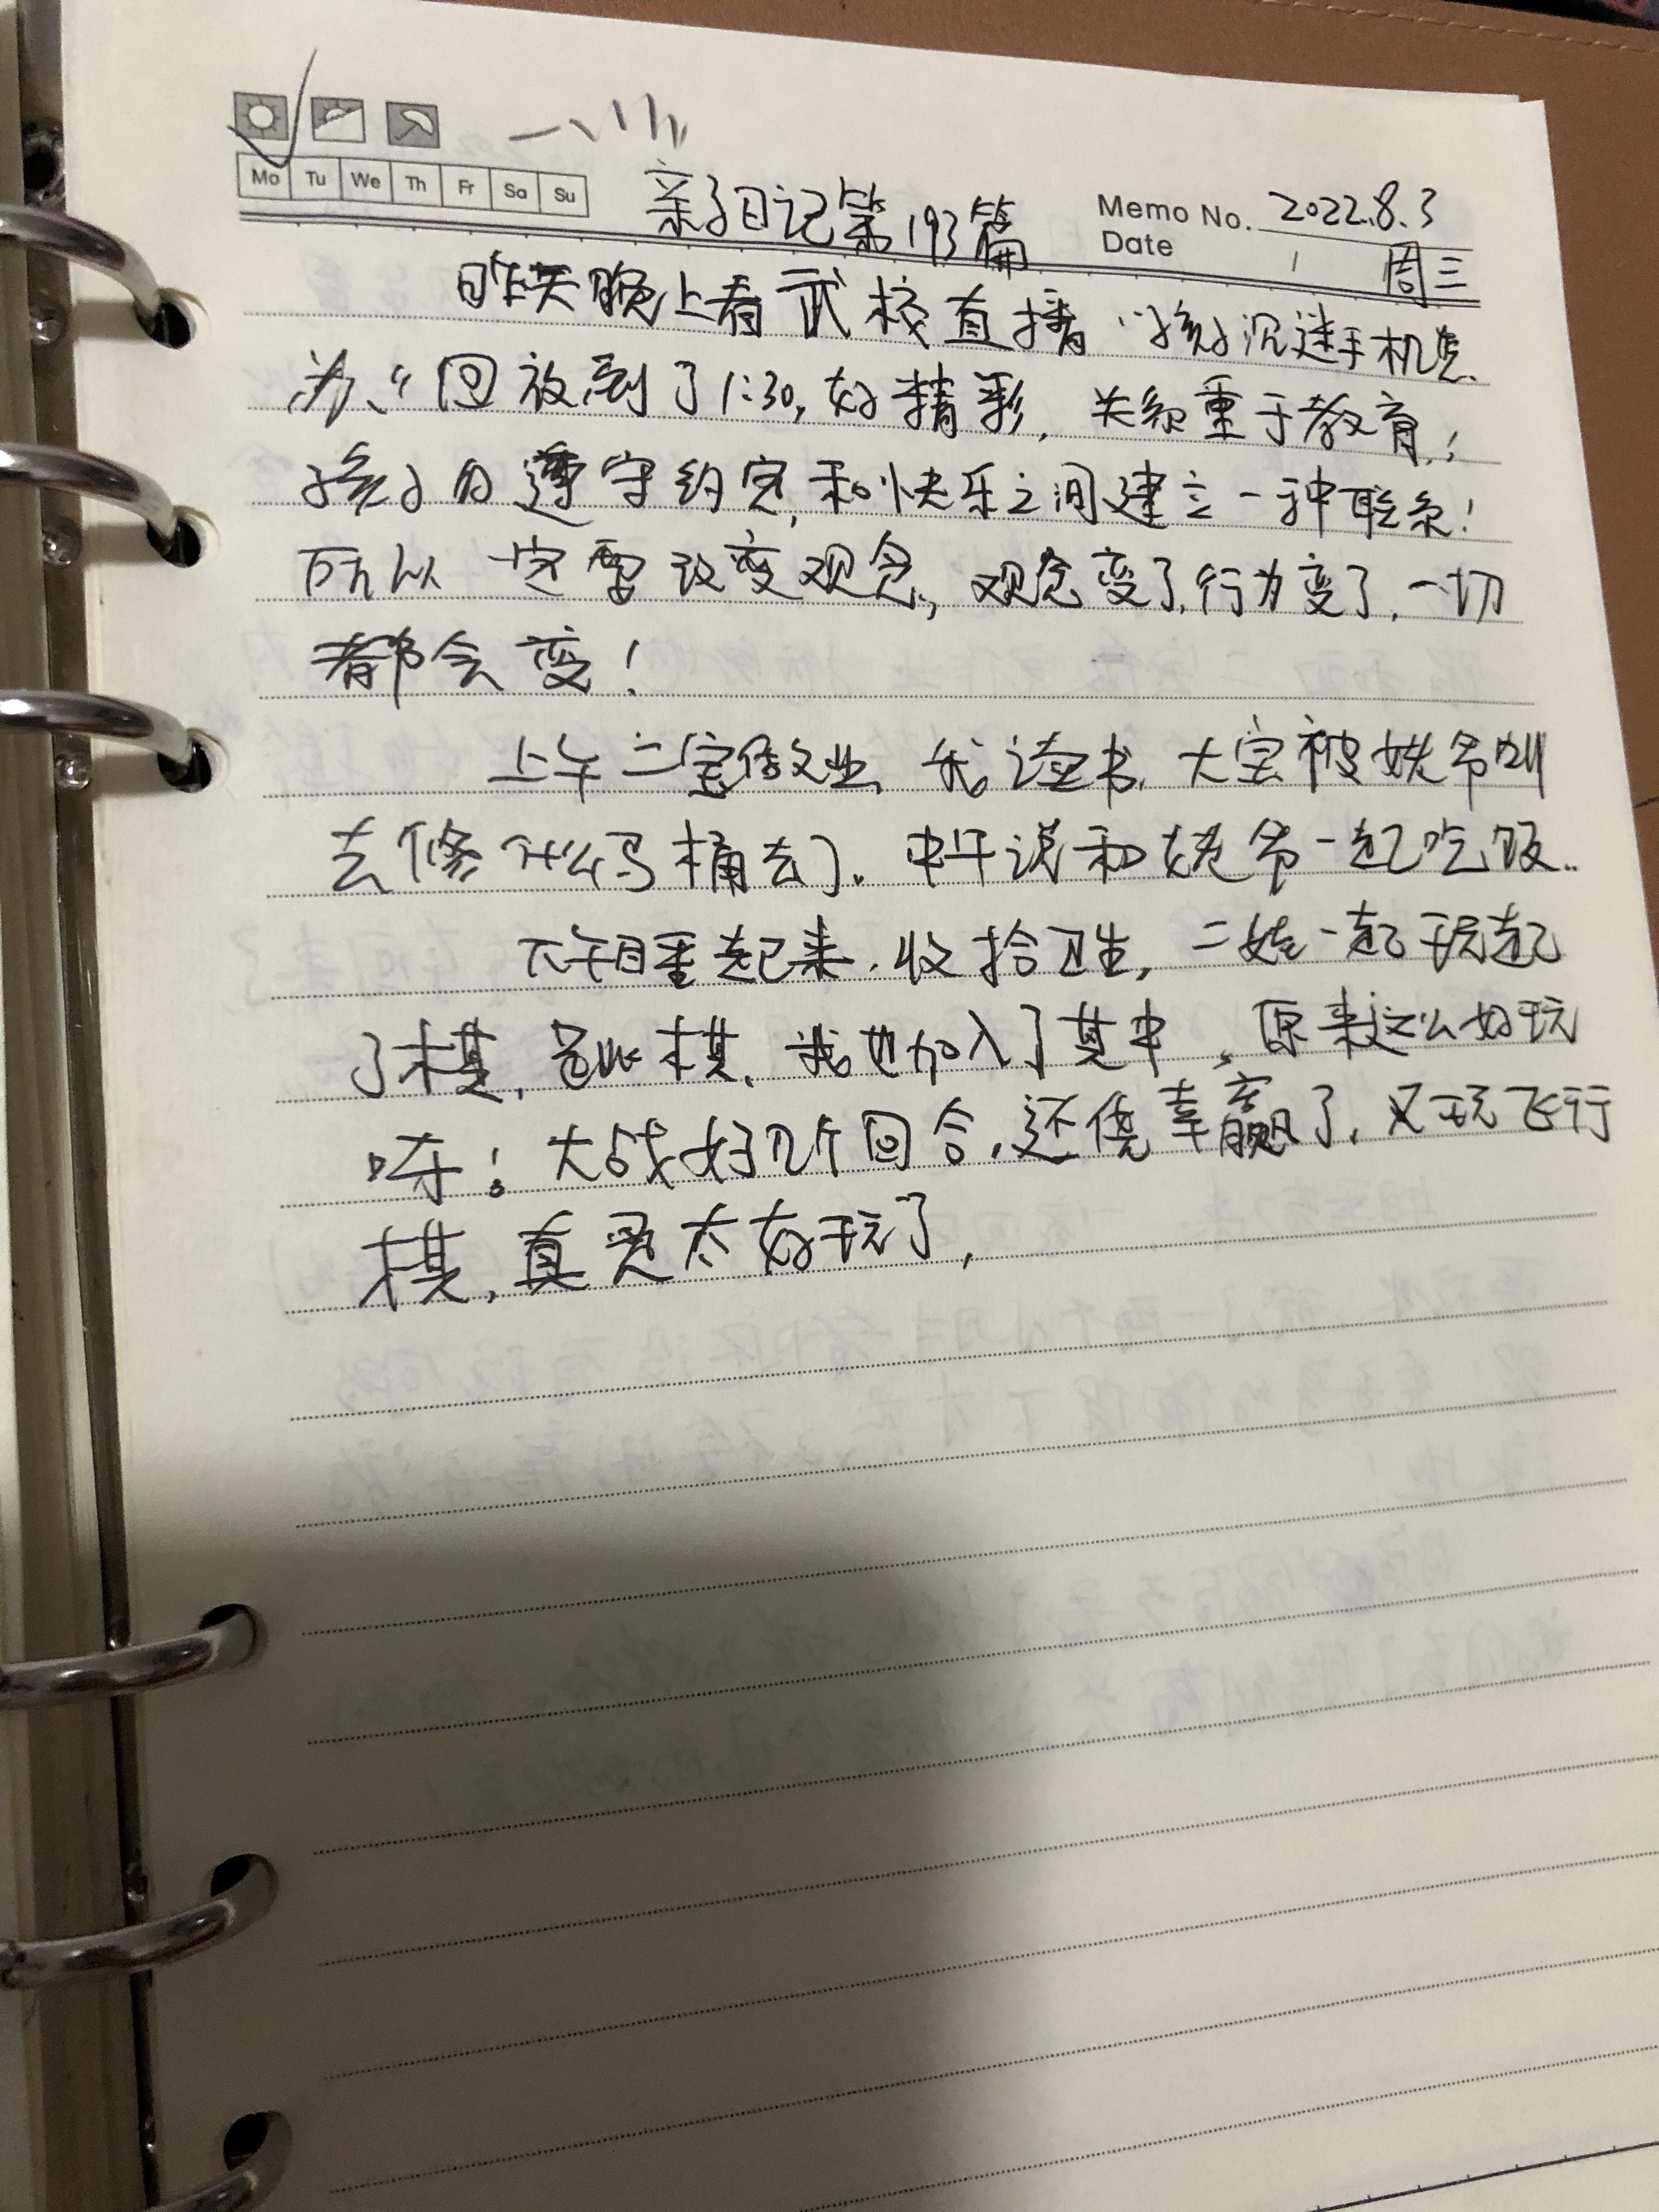 Mo Tu We Th Fr Sa Su
亲子日记第193篇
Memo No. 2022.8.3
Date 周三
昨天晚上看武校直播“孩子沉迷手机怎
么办”回放到了1:30,好精彩,关系重于教育!
孩子的遵守约定,和快乐之间建立一种联系!
所以一定要改变观念,观念变了,行为变了,一切
都会变!
上午二宝做作业,我读书,大宝被姥爷叫
去修什么马桶去了。中午说和姥爷一起吃饭..
下午睡起来,收拾卫生,二娃一起玩起
了棋,跳棋,我也加入了其中,原来这么好玩
呀!大战好几个回合,还侥幸赢了,又玩飞行
棋,真是太好玩了,